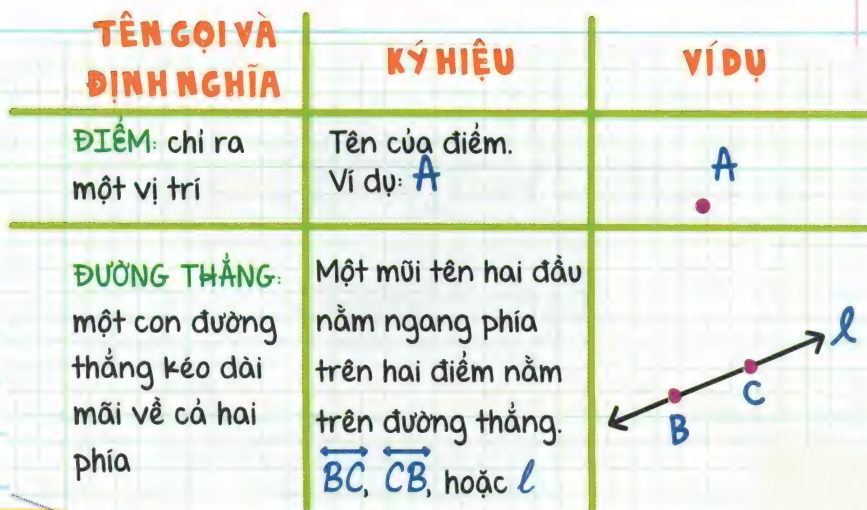 TÊN GỌI VÀ
ĐỊNH NGHĨA
KÝ HIỆU
VÍ DỤ
ĐIỂM: chỉ ra
một vị trí
Tên của điểm.
Ví dụ: A
A
ĐƯỜNG THẲNG:
một con đường
thẳng kéo dài
mãi về cả hai
phía
Một mũi tên hai đầu
nằm ngang phía
trên hai điểm nằm
trên đường thẳng.
BC, CB, hoặc ℓ
ℓ
C
B